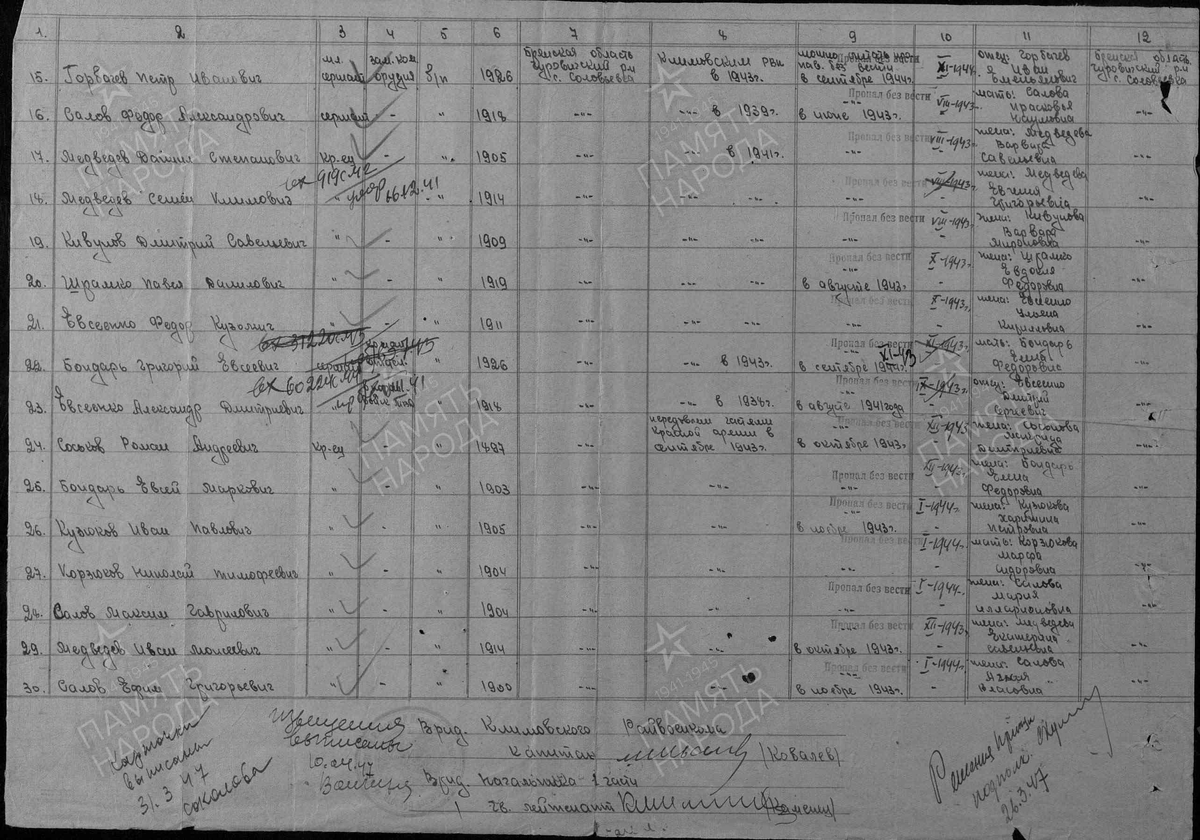 1. 2 3 4 5 6 7 8 9 10 11 12
15. Горбачев Петр Иванович мл. сержант зам. ком. орудия б/п 1926 Брянская область Чуровичский р-н с. Соловьевка Климовским РВК в 1943г. можно считать без вести в сентябре 1944г. Пропал без вести XI-1944г. отец: Горбачев Иван Емельянович Брянская область Чуровичский р-н с. Соловьевка
16. Салов Федор Александрович сержант - " 1918 -"- -"- в 1939г. в июне 1943г. Пропал без вести VIII-1943г. мать: Салова Прасковья Наумовна -"-
17. Медведев Даниил Степанович кр-ец - " 1905 -"- -"- в 1941г. -"- Пропал без вести VIII-1943г. жена: Медведева Варвара Савельевна -"-
вх 919см2
18. Медведев Семен Климович " умер 16.12.41 " 1914 -"- -"- -"- -"- Пропал без вести VIII-1943г. жена: Медведева Евгения Григорьевна -"-
19. Кивулов Дмитрий Савельевич " - " 1909 -"- -"- -"- -"- Пропал без вести VIII-1943г. жена: Кивулова Варвара Мироновна -"-
20. Шрамко Павел Данилович " - " 1919 -"- -"- -"- в августе 1943г. Пропал без вести X-1943г. жена: Шрамко Евдокия Федоровна -"-
21. Евсеенко Федор Кузьмич " - " 1911 -"- -"- -"- -"- Пропал без вести X-1943г. жена: Евсеенко Ульяна Кирилловна -"-
22. Бондарь Григорий Евсеевич " 1926 -"- -"- в 1943г. в сентябре 1944г. Пропал без вести XI-43 XI-1943г. мать: Бондарь Елена Федоровна -"-
вх 60224см4
23. Евсеенко Александр Дмитриевич " " 1918 -"- -"- в 1938г. в августе 1941года Пропал без вести X-1943г. отец: Евсеенко Дмитрий -"-
24. Роман Андреевич кр-ец - " 1897 -"- передовыми частями Красной армии в сентябре 1943г. в октябре 1943г. Пропал без вести XII-1943г. жена: Дмитриевна -"-
25. Бондарь Евсей Маркович " - " 1903 -"- -"- -"- Пропал без вести XII-194 г. жена: Бондарь Елена Федоровна -"-
26. Кузюков Иван Павлович " - " 1905 -"- -"- в ноябре 1943г. Пропал без вести I-1944г. жена: Кузюкова Петровна -"-
27. Корзюков Николай Тимофеевич " - " 1904 -"- -"- -"- Пропал без вести I-1944г. мать: Корзюкова Марфа Сидоровна -"-
28. Салов Максим Гаврилович " - " 1904 -"- -"- -"- Пропал без вести I-1944г. жена: Салова Мария Илларионовна -"-
29. Медведев Иван Моисеевич " - " 1914 -"- -"- в октябре 1943г. Пропал без вести XII-1943г. жена: Медведева Екатерина Савельевна -"-
30. Салов Ефим Григорьевич " - " 1900 -"- -"- в ноябре 1943г. Пропал без вести I-1944г. жена: Салова Власовна -"-
Карточки
выписаны
31.3.47
Соколова
Извещения
выписаны
10.04.47
Врид. Климовского Райвоенкома
Капитан /Ковалев/
Врид. Начальника 1 части
Гв. лейтенант
26.3.47
ПАМЯТЬ
НАРОДА
1941-1945